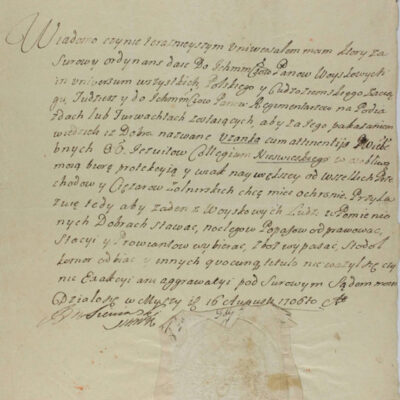 Wiadomo czynię terazniejszym Uniwersałem mam ktory za
Surowy ordynans dac Do Ichmmciow Panow Woyskowych
in universum wszystkich Polskiego y Cudzoziemskiego Zacią
gu, Tudziesz y do Ichmmciow Panow Regimentarzow na Podia
zdach lub Furwachtach zostaiących, aby za Jego pokazaniem
wiedzieli isz Dobra nazwane Uzanka cum attinentijs Wieleb
bnych OO. Jezuitow Collegium Nieswieskiego w osobliwą
moią biorę protekcyią y iak naywększey od wszelkich Prze
chodow y Cięzarow zołnierskich chcę miec ochronę. Przyka
zuię tedy aby zaden z Woyskowych Ludzi w Pomienio
nych Dobrach stawac, noclegow Popasow odprawowac,
Stacyi y Prowiantow wybierac, zboz wypasac, Stodoł
komor odbiiac y innych quocunq titulo nie wazył się czy
nic Exakcyi ani aggrawacyi pod Surowym Sądem moim
Działo się w Myszy d. 16 Augusti 1706to Ao